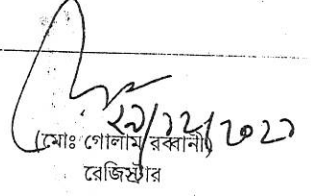 ২৯/১২/২০২১
(মোঃ গোলাম রব্বানী)
রেজিস্ট্রার